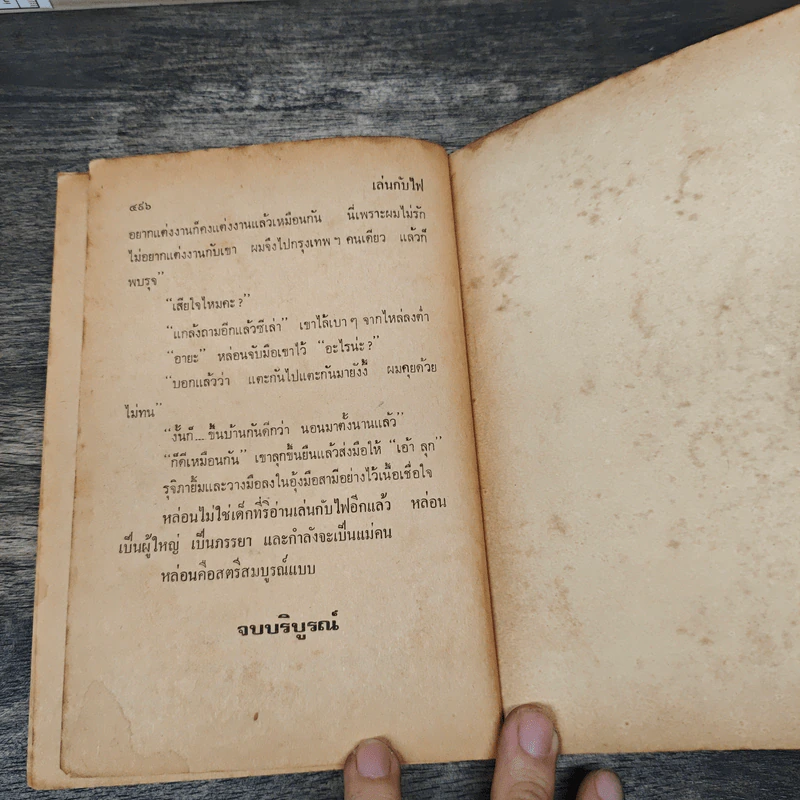 ๔๙๖
เล่นกับไฟ
อยากแต่งงานก็คงแต่งงานแล้วเหมือนกัน นี่เพราะผมไม่รัก
ไม่อยากแต่งงานกับเขา ผมจึงไปกรุงเทพ ฯ คนเดียว แล้วก็
พบรุจ”
“เสียใจไหมคะ ?”
“แกล้งถามอีกแล้วซีเล่า” เขาไล้เบา ๆ จากไหล่ลงต่ำ
“อายะ” หล่อนจับมือเขาไว้ “อะไรน่ะ ?”
“บอกแล้วว่า แตะกันไปแตะกันมายังงี้ ผมคุยด้วย
ไม่ทน”
“งั้นก็.... ขึ้นบ้านกันดีกว่า นอนมาตั้งนานแล้ว”
“ก็ดีเหมือนกัน” เขาลุกขึ้นยืนแล้วส่งมือให้ “เอ้า ลุก”
รุจิภายิ้มและวางมือลงในอุ้งมือสามีอย่างไว้เนื้อเชื่อใจ
หล่อนไม่ใช่เด็กที่ริอ่านเล่นกับไฟอีกแล้ว หล่อน
เป็นผู้ใหญ่ เป็นภรรยา และกำลังจะเป็นแม่คน
หล่อนคือสตรีสมบูรณ์แบบ
จบบริบูรณ์